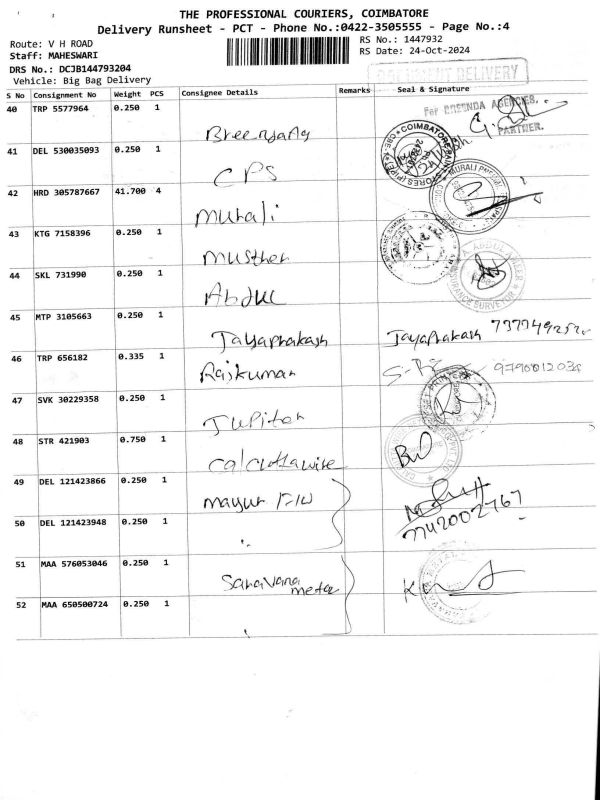 THE PROFESSIONAL COURIERS, COIMBATORE
Delivery Runsheet - PCT - Phone No.:0422-3505555 - Page No.:4
Route: V H ROAD RS No.: 1447932
Staff: MAHESWARI RS Date: 24-Oct-2024
DRS No.: DCJB144793204
Vehicle: Big Bag Delivery DOCUMENT DELIVERY
S No Consignment No Weight PCS Consignee Details Remarks Seal & Signature
40 TRP 5577964 0.250 1 For BREENDA AGENCIES.
PARTNER.
41 DEL 530035093 0.250 1 CPS
42 HRD 305787667 41.700 4 Murali
43 KTG 7158396 0.250 1
44 SKL 731990 0.250 1 Abdul
45 MTP 3105663 0.250 1 Jayaprakash Jayaprakash
46 TRP 656182 0.335 1 Rajkumar
47 SVK 30229358 0.250 1 Jupiter
48 STR 421903 0.750 1 calcuttawire
49 DEL 121423866 0.250 1 mayur
50 DEL 121423948 0.250 1 " 7742002767
51 MAA 576053046 0.250 1 Saravana
metal
52 MAA 650500724 0.250 1 "